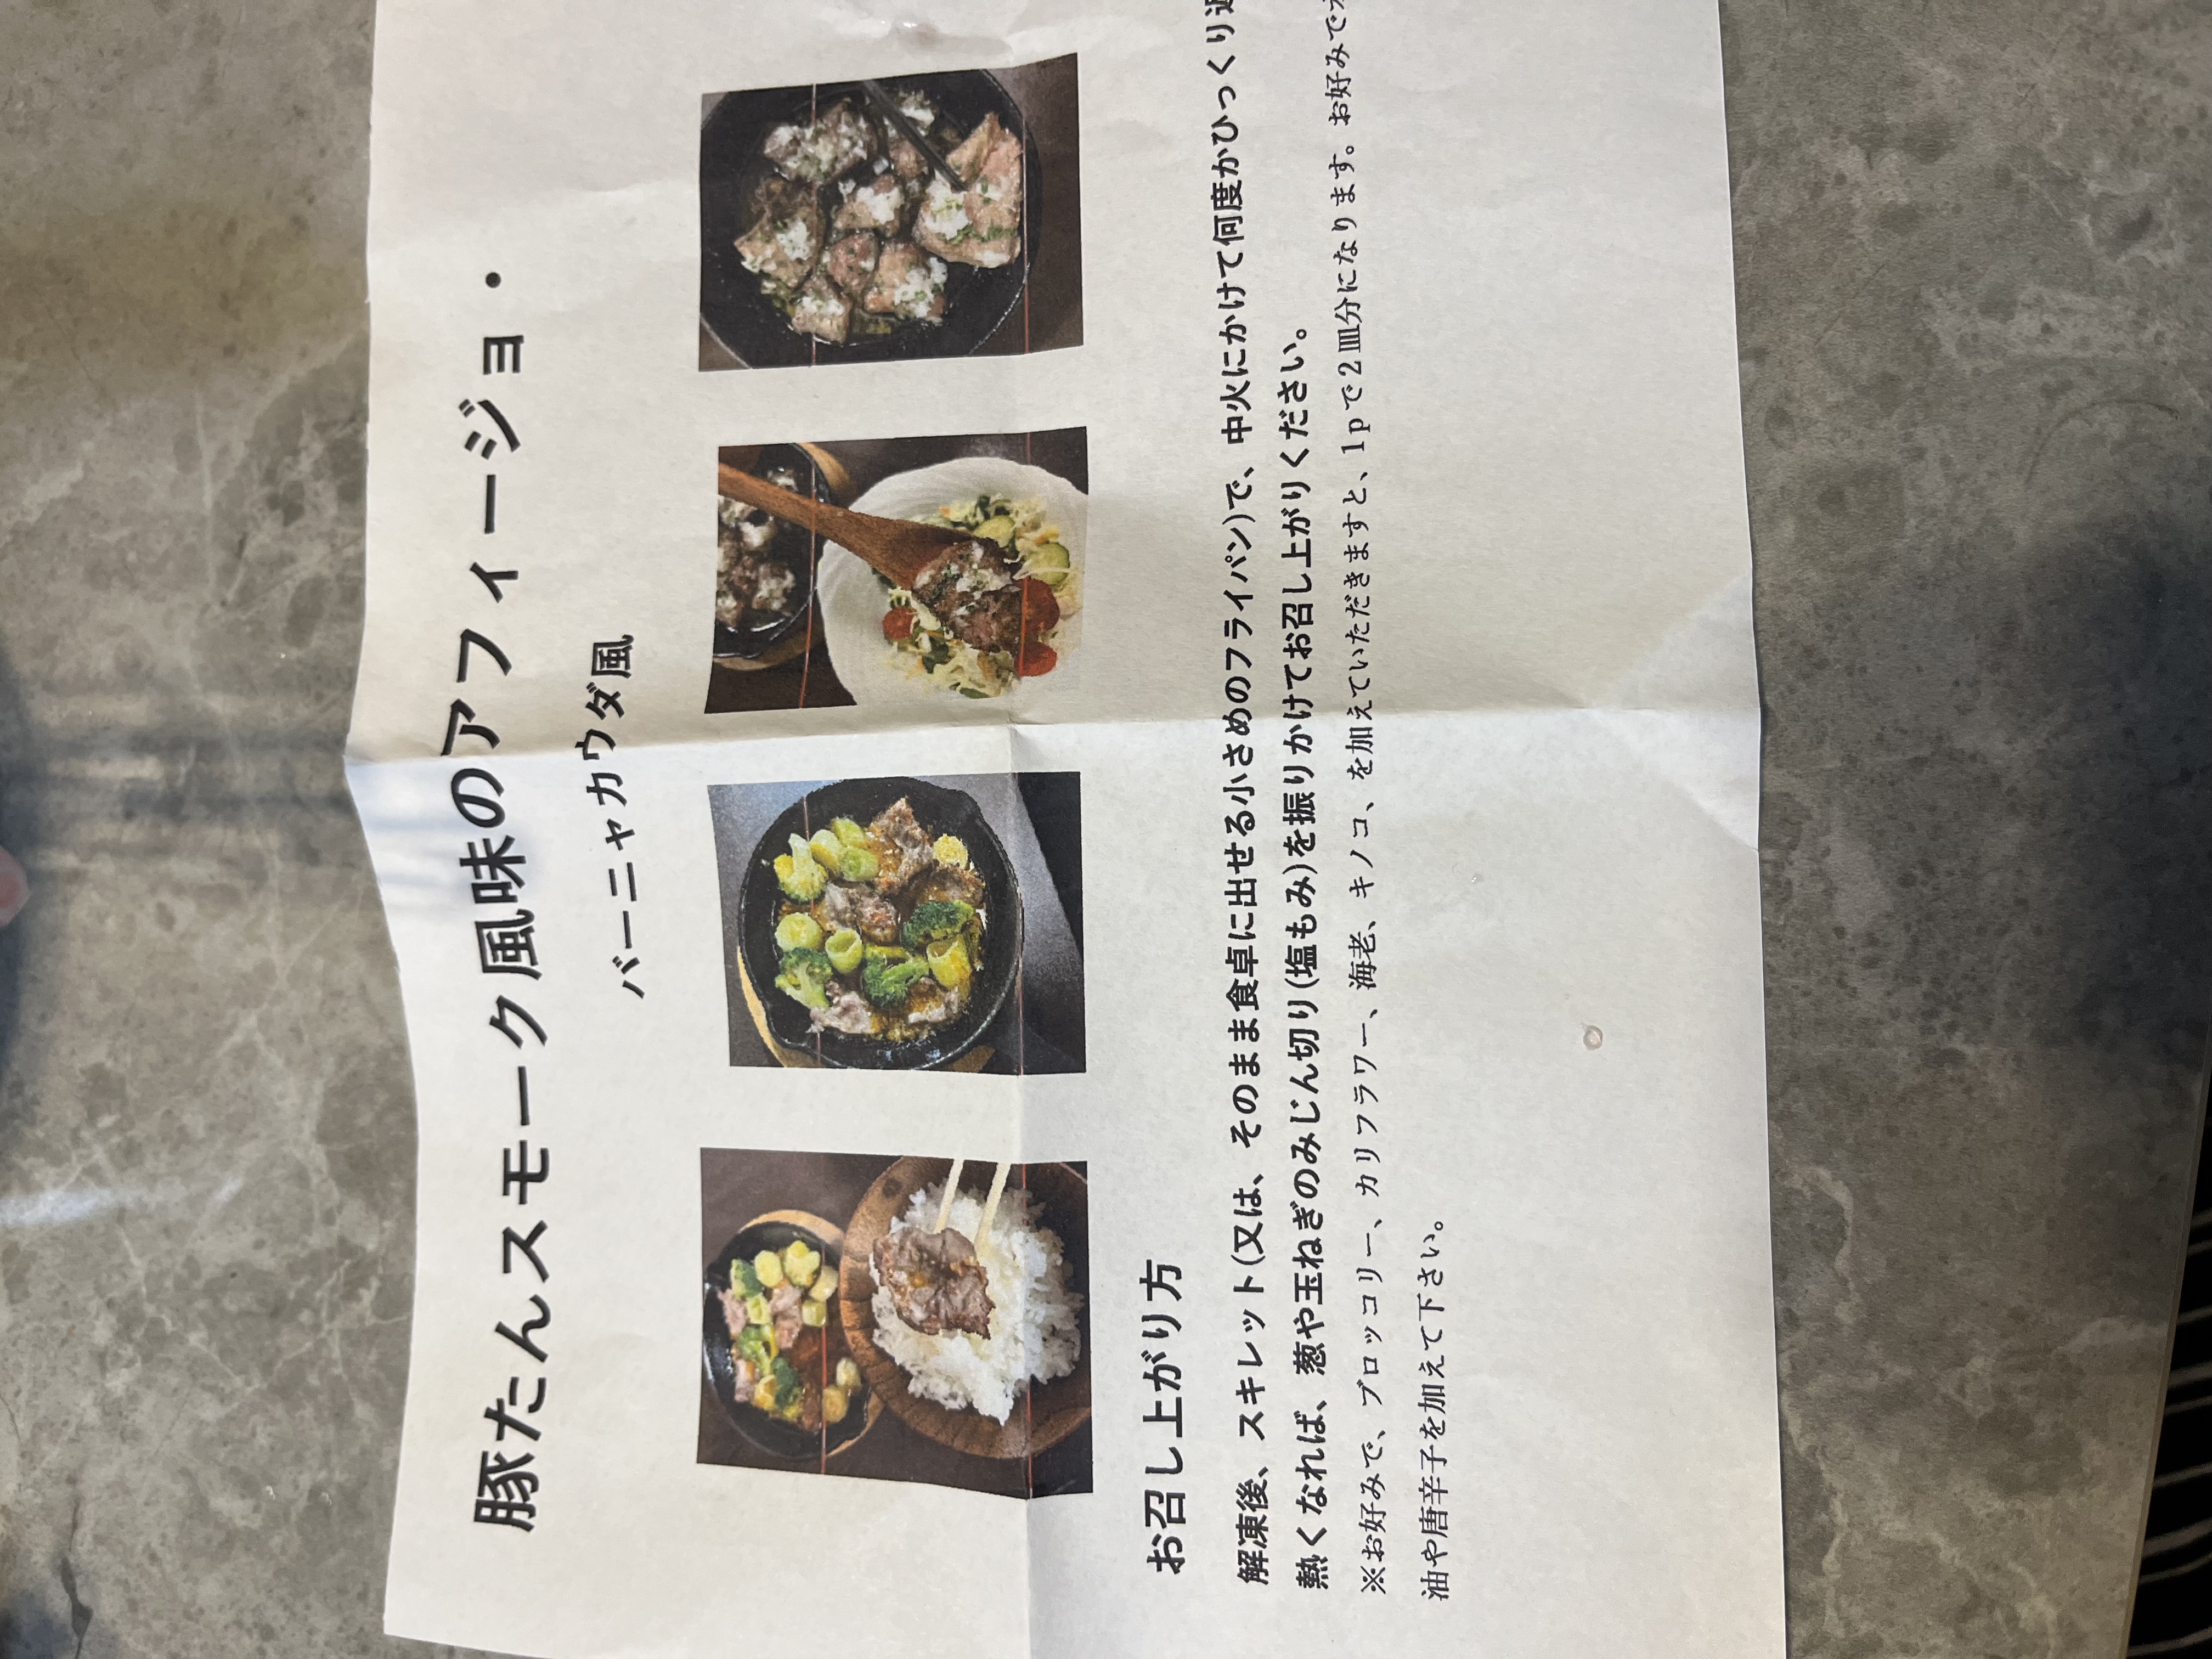 豚たんスモーク風味のアフィージョ・
バーニャカウダ風
お召し上がり方
解凍後、スキレット(又は、そのまま食卓に出せる小さめのフライパン)で、中火にかけて何度かひっくり返
熱くなれば、葱や玉ねぎのみじん切り(塩もみ)を振りかけてお召し上がりください。
※お好みで、ブロッコリー、カリフラワー、海老、キノコ、を加えていただきますと、1pで2皿分になります。お好みで
油や唐辛子を加えて下さい。